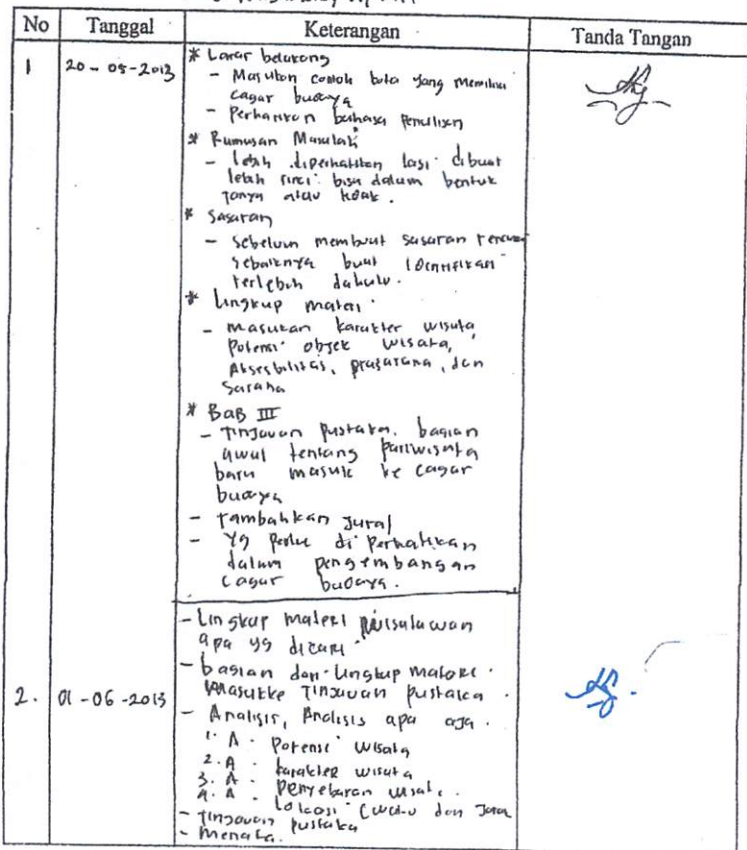 No Tanggal Keterangan Tanda Tangan
1 20 - 05 - 2013 * Latar belakang
- Masukan contoh kota yang memiliki
cagar budaya
- Perhatikan bahasa Penulisan
* Rumusan Masalah
- lebih diperhatikan lagi dibuat
lebih rinci bisa dalam bentuk
tanya atau tidak.
* Sasaran
- Sebelum membuat sasaran
sebaiknya buat identifikasi
terlebih dahulu.
* Lingkup materi
- masukan karakter wisata
Potensi objek wisata,
Aksesbilitas, prasarana, dan
Sarana
* BaB III
- Tinjauan Pustaka. bagian
awal tentang pariwisata
baru masuk ke cagar
budaya
- tambahkan Jurnal
- Yg Perlu di Perhatikan
dalam pengembangan
Cagar budaya.
- Lingkup materi wisatawan
apa yg dicari
- bagian dari Lingkup Materi
Masukke Tinjauan Pustaka.
2. 01 - 06 - 2013 - Analisis, Analisis apa aja.
1. A. Potensi wisata
2. A. karakter wisata
3. A. Penyebaran wisata.
4. A. Lokasi (waktu dan Jarak
- Tinjauan Pustaka
- Menata.